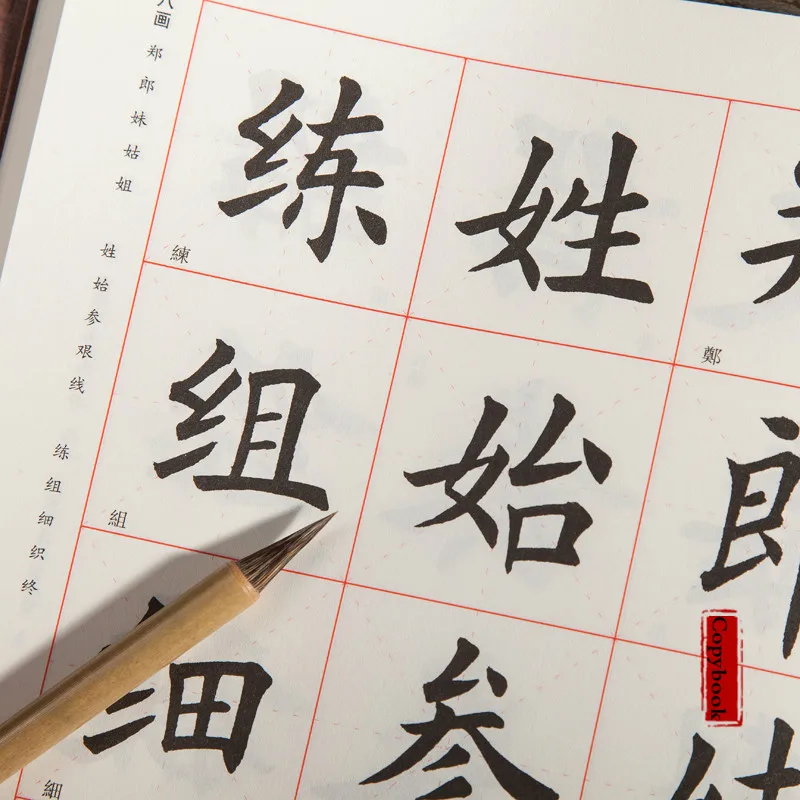 鄭
郎
姓
始
参
练
練
组
組
细
細
八画
郑郎妹姑姐
姓始参艰线
练组细织终
Copybook